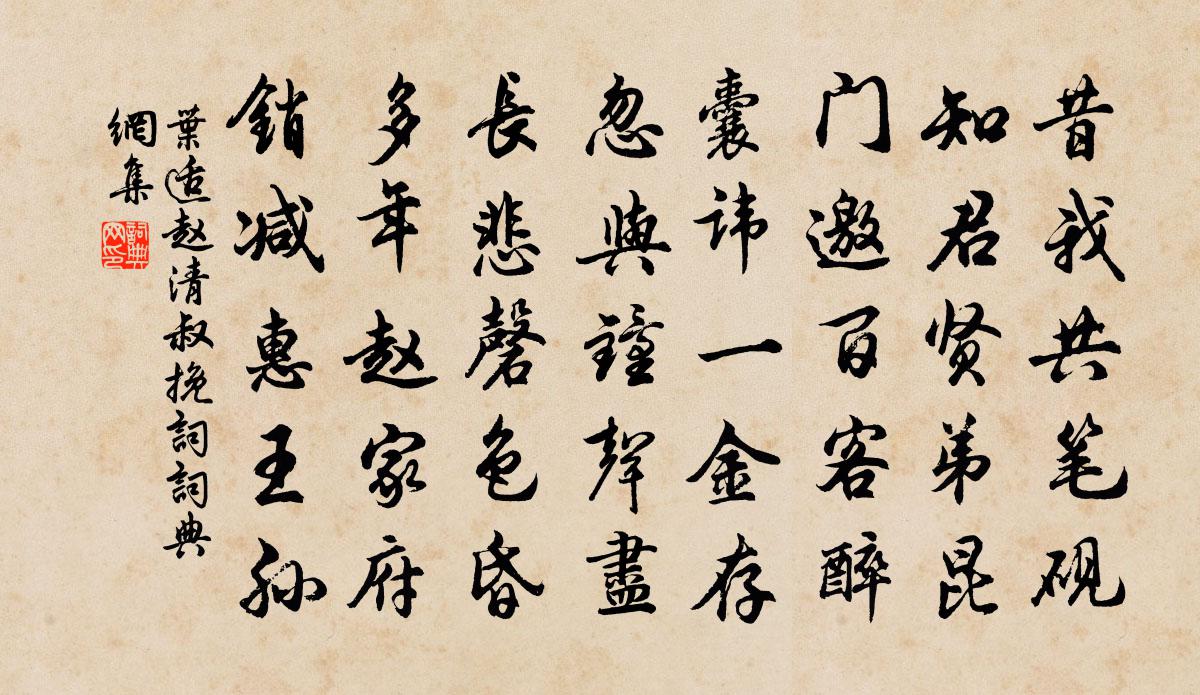 昔我共笔砚
知君贤弟昆
门邀百客醉
囊讳一金存
忽與鐘聲盡
長悲磬色昏
多年赵家府
銷减惠王孙
葉适赵清叔挽詞詞典
網集
詞典网印